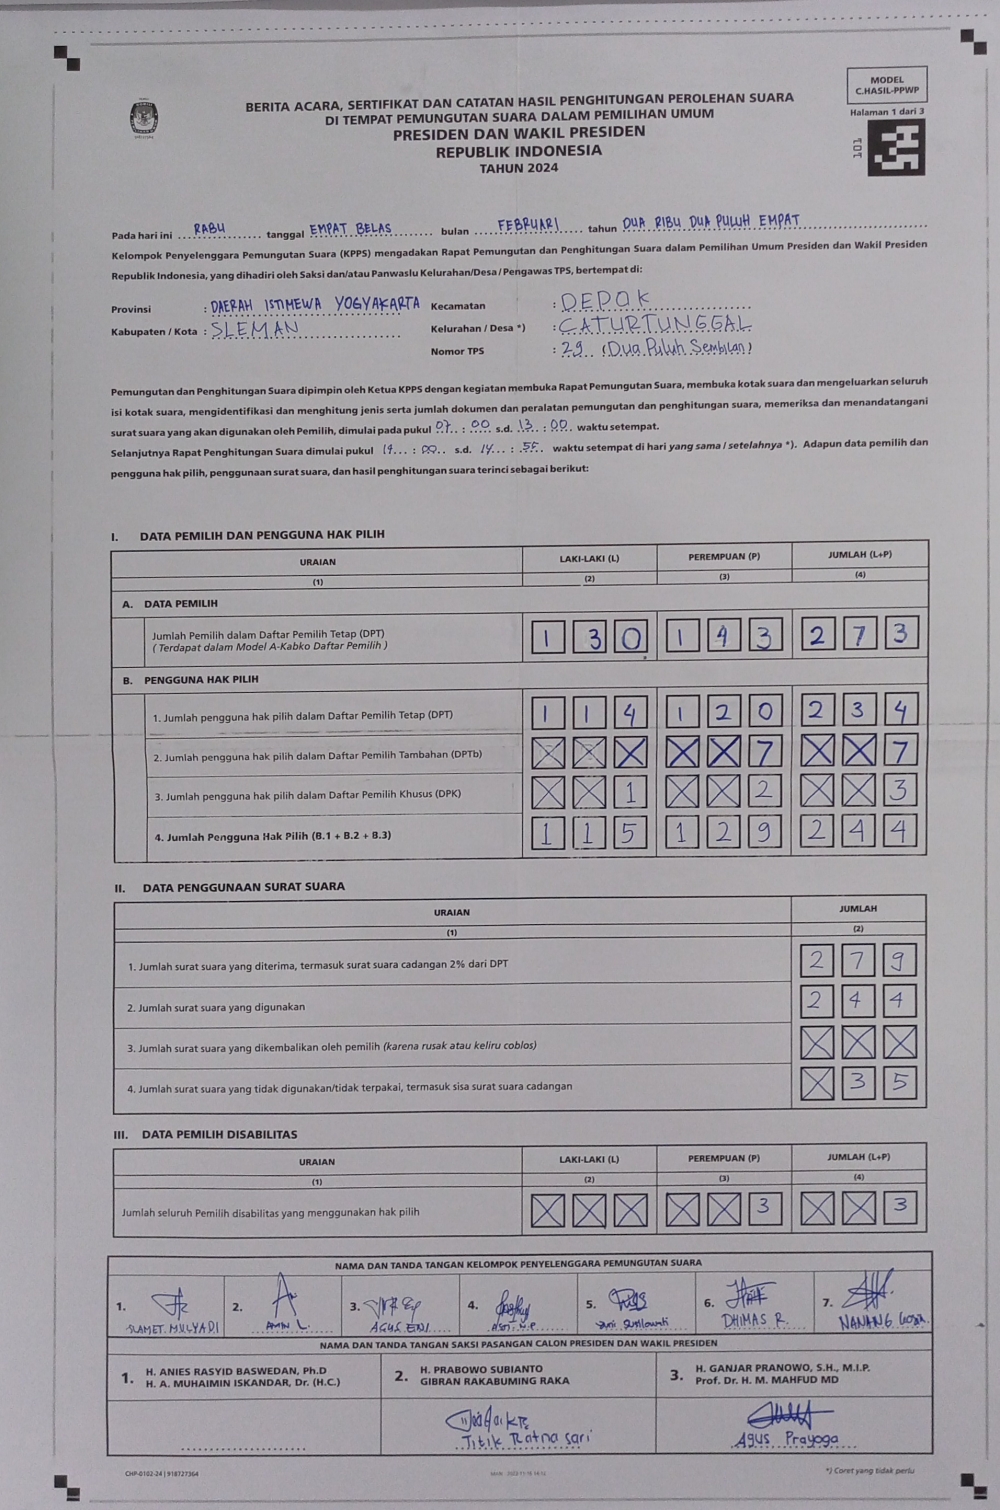 MODEL
C.HASIL-PPWP
Halaman 1 dari 3
101
BERITA ACARA, SERTIFIKAT DAN CATATAN HASIL PENGHITUNGAN PEROLEHAN SUARA
DI TEMPAT PEMUNGUTAN SUARA DALAM PEMILIHAN UMUM
PRESIDEN DAN WAKIL PRESIDEN
REPUBLIK INDONESIA
TAHUN 2024
Pada hari ini RABU tanggal EMPAT BELAS bulan FEBRUARI tahun DUA RIBU DUA PULUH EMPAT
Kelompok Penyelenggara Pemungutan Suara (KPPS) mengadakan Rapat Pemungutan dan Penghitungan Suara dalam Pemilihan Umum Presiden dan Wakil Presiden
Republik Indonesia, yang dihadiri oleh Saksi dan/atau Panwaslu Kelurahan/Desa/Pengawas TPS, bertempat di:
Provinsi : DAERAH ISTIMEWA YOGYAKARTA Kecamatan : DEPOK
Kabupaten / Kota : SLEMAN Kelurahan / Desa *) : CATURTUNGGAL
Nomor TPS : 29 (Dua Puluh Sembilan)
Pemungutan dan Penghitungan Suara dipimpin oleh Ketua KPPS dengan kegiatan membuka Rapat Pemungutan Suara, membuka kotak suara dan mengeluarkan seluruh
isi kotak suara, mengidentifikasi dan menghitung jenis serta jumlah dokumen dan peralatan pemungutan dan penghitungan suara, memeriksa dan menandatangani
surat suara yang akan digunakan oleh Pemilih, dimulai pada pukul 07 : 00 s.d. 13 : 00 waktu setempat.
Selanjutnya Rapat Penghitungan Suara dimulai pukul 14 : 00 s.d. 14 : 55 waktu setempat di hari yang sama / setelahnya *). Adapun data pemilih dan
pengguna hak pilih, penggunaan surat suara, dan hasil penghitungan suara terinci sebagai berikut:
I. DATA PEMILIH DAN PENGGUNA HAK PILIH
URAIAN LAKI-LAKI (L) PEREMPUAN (P) JUMLAH (L+P)
(1) (2) (3) (4)
A. DATA PEMILIH
Jumlah Pemilih dalam Daftar Pemilih Tetap (DPT) 1 3 0 1 4 3 2 7 3
( Terdapat dalam Model A-Kabko Daftar Pemilih )
B. PENGGUNA HAK PILIH
1. Jumlah pengguna hak pilih dalam Daftar Pemilih Tetap (DPT) 1 1 4 1 2 0 2 3 4
2. Jumlah pengguna hak pilih dalam Daftar Pemilih Tambahan (DPTb) X X X X X 7 X X 7
3. Jumlah pengguna hak pilih dalam Daftar Pemilih Khusus (DPK) X X 1 X X 2 X X 3
4. Jumlah Pengguna Hak Pilih (B.1 + B.2 + B.3) 1 1 5 1 2 9 2 4 4
II. DATA PENGGUNAAN SURAT SUARA
URAIAN JUMLAH
(1) (2)
1. Jumlah surat suara yang diterima, termasuk surat suara cadangan 2% dari DPT 2 7 9
2. Jumlah surat suara yang digunakan 2 4 4
3. Jumlah surat suara yang dikembalikan oleh pemilih (karena rusak atau keliru coblos) X X X
4. Jumlah surat suara yang tidak digunakan/tidak terpakai, termasuk sisa surat suara cadangan X 3 5
III. DATA PEMILIH DISABILITAS
URAIAN LAKI-LAKI (L) PEREMPUAN (P) JUMLAH (L+P)
(1) (2) (3) (4)
Jumlah seluruh Pemilih disabilitas yang menggunakan hak pilih X X X X X 3 X X 3
NAMA DAN TANDA TANGAN KELOMPOK PENYELENGGARA PEMUNGUTAN SUARA
1. 2. 3. 4. 5. 6. 7.
SLAMET MULYADI AMIN L. AGUS ENI DHIMAS R. NANANG
NAMA DAN TANDA TANGAN SAKSI PASANGAN CALON PRESIDEN DAN WAKIL PRESIDEN
1. H. ANIES RASYID BASWEDAN, Ph.D
H. A. MUHAIMIN ISKANDAR, Dr. (H.C.)
2. H. PRABOWO SUBIANTO
GIBRAN RAKABUMING RAKA
3. H. GANJAR PRANOWO, S.H., M.I.P.
Prof. Dr. H. M. MAHFUD MD
Titik Ratna sari
Agus Prayoga
CHP-0102-24 | 918727364
*) Coret yang tidak perlu